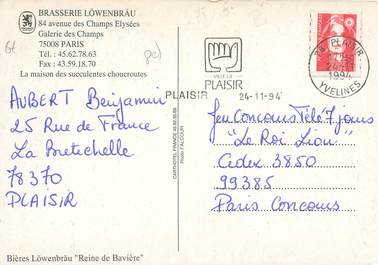 BRASSERIE LÖWENBRÄU
84 avenue des Champs Elysées
Galerie des Champs
75008 PARIS
Tél. : 45.62.78.63
Fax : 43.59.18.70
La maison des succulentes choucroutes
AUBERT Benjamin
25 Rue de France
La Bretechelle
78370
PLAISIR
Bières Löwenbräu "Reine de Bavière"
VILLE DE
PLAISIR
PLAISIR 24-11-94
78 PLAISIR
24-11
1994
YVELINES
Jeu Concours Télé 7 jours
"Le Roi Lion"
Cedex 3850
99385
Paris Concours